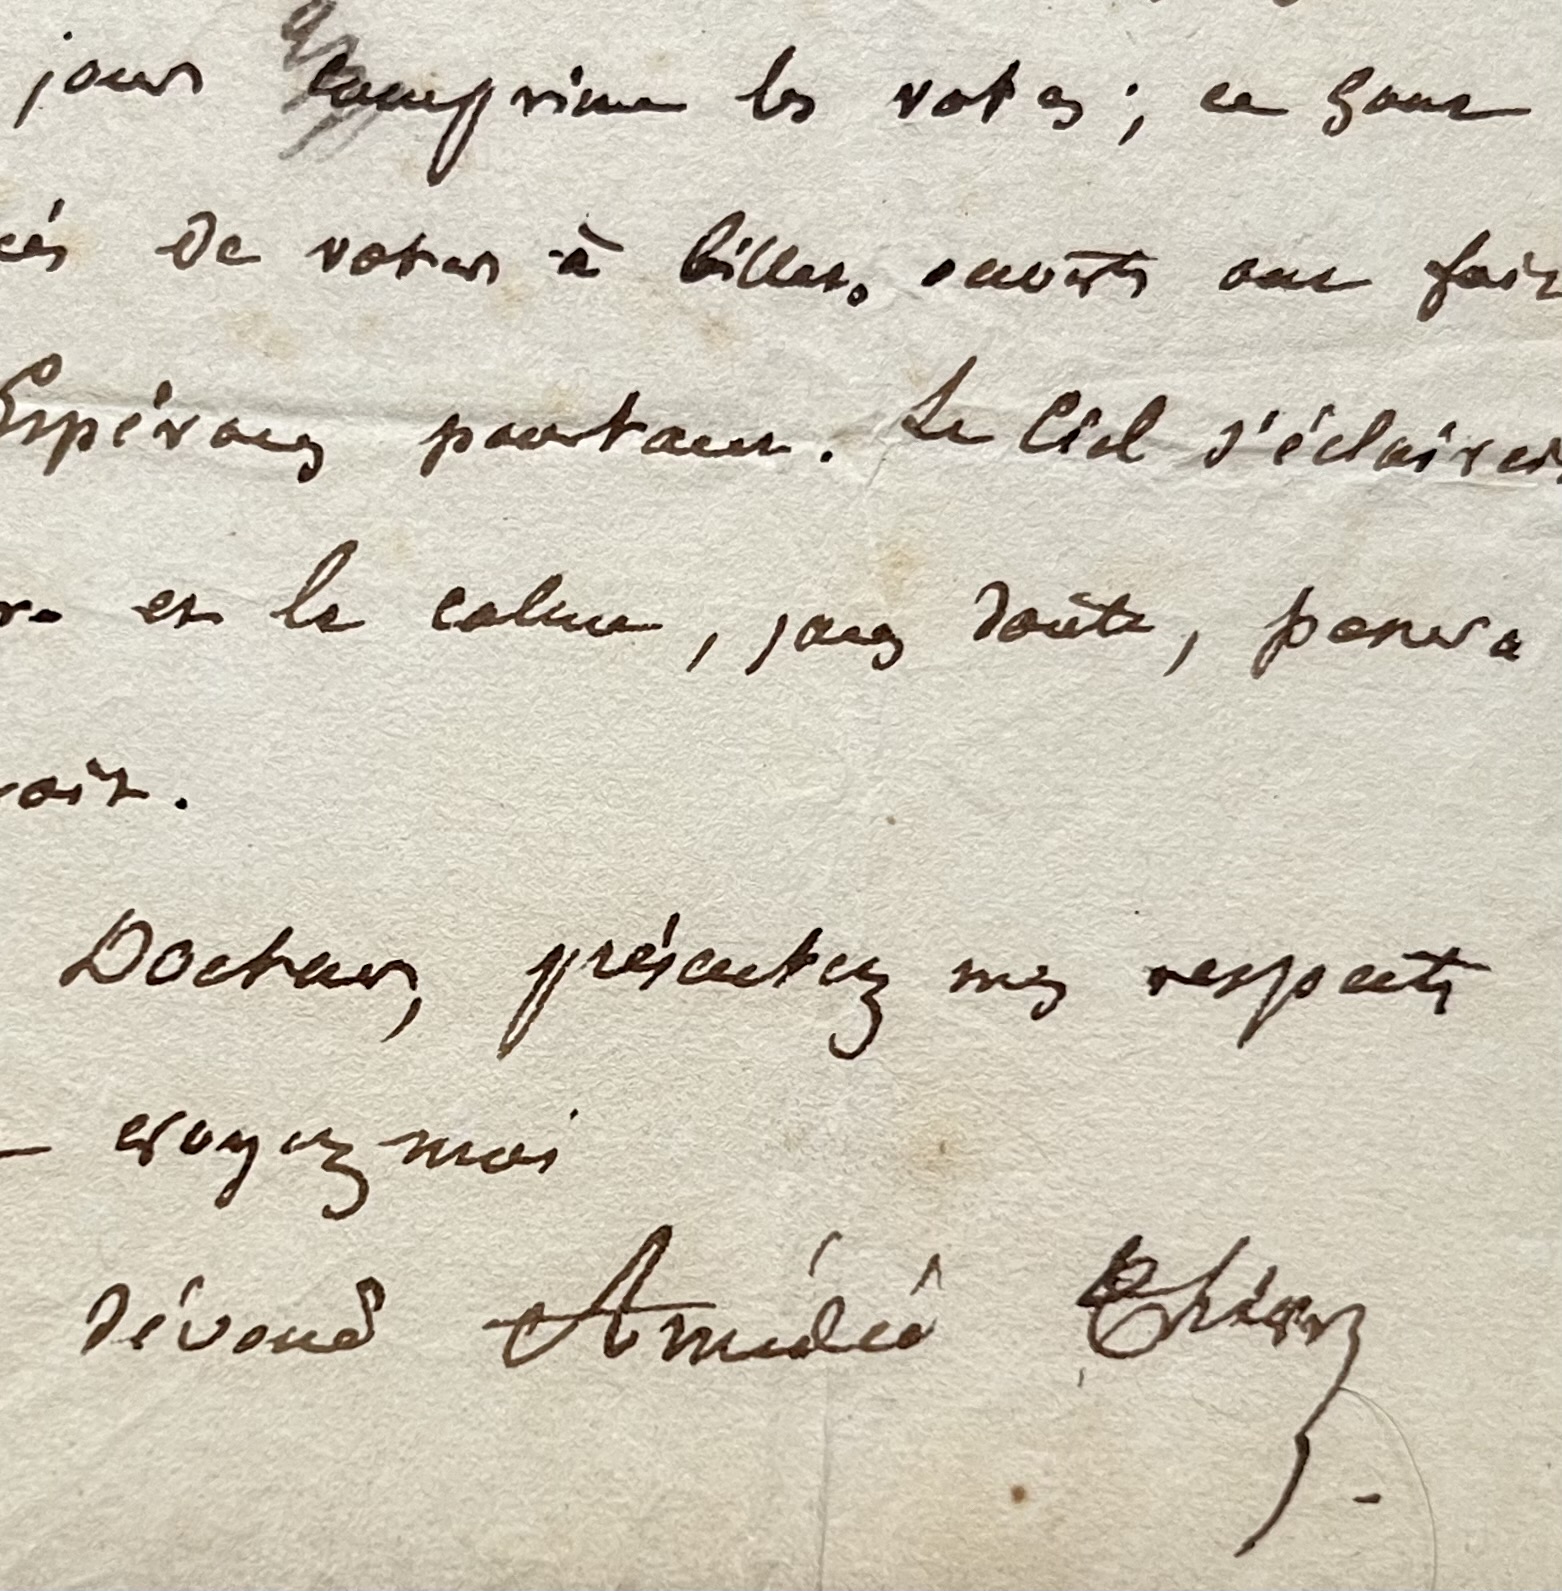 jours comprime les votes; ce sont
cés de voter à billets ouverts ont fait
Espérons pourtant. Le Ciel s'éclaircit
et le calme, sans doûte, pensera
voir.
Docteur, présentez mes respects
croyez moi
dévoué Amédée Thierry